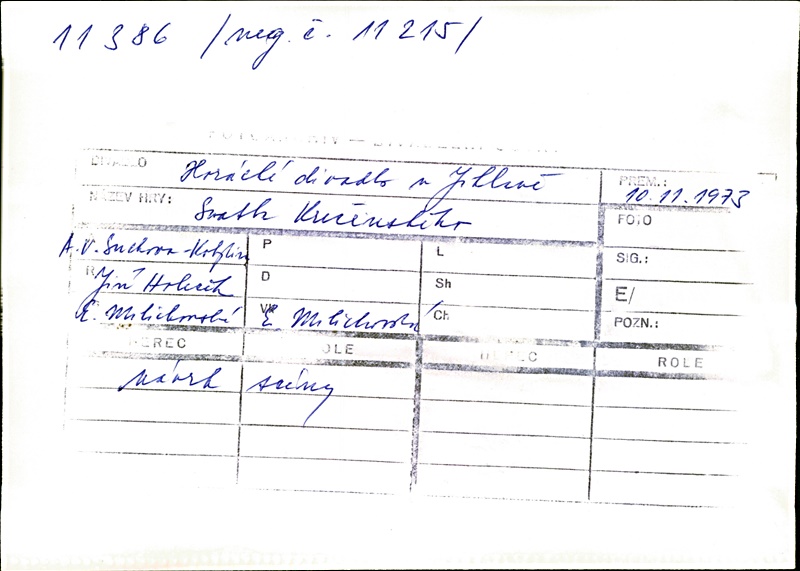 11386 /neg. č. 11215/
DIVADLO Horácké divadlo v Jihlavě PREM.: 10.11.1973
NÁZEV HRY: Svatba Krečinského FOTO
A. V. Suchovo-Kobylin P L SIG.:
Jiří Holeček D Sh E/
E. Milichovská VK E. Milichovská Ch POZN.:
HEREC ROLE HEREC ROLE
návrh scény